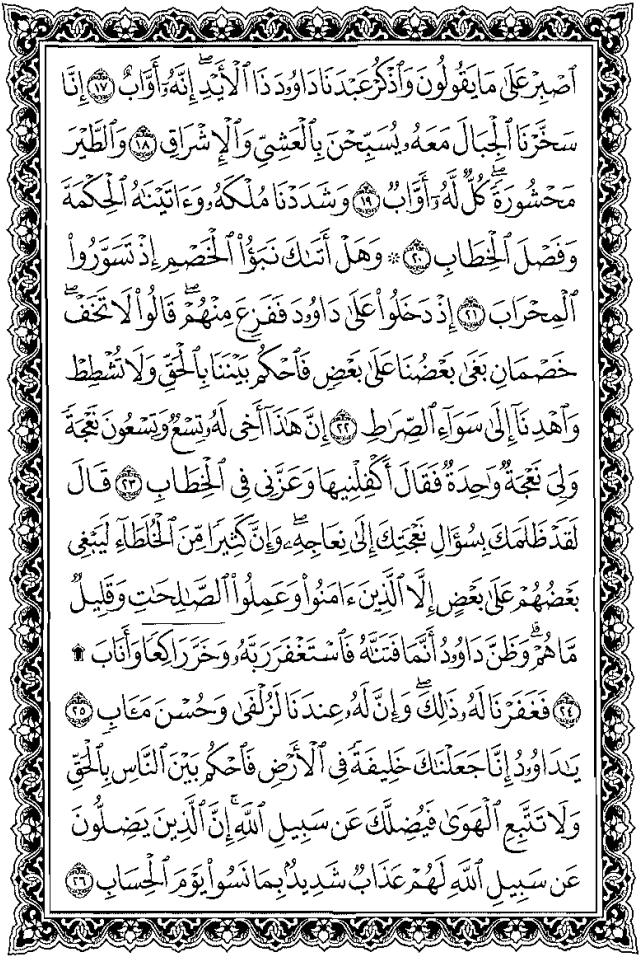 ٱصۡبِرۡ عَلَىٰ مَا يَقُولُونَ وَٱذۡكُرۡ عَبۡدَنَا دَاوُۥدَ ذَا ٱلۡأَيۡدِۖ إِنَّهُۥٓ أَوَّابٌ ١٧ إِنَّا
سَخَّرۡنَا ٱلۡجِبَالَ مَعَهُۥ يُسَبِّحۡنَ بِٱلۡعَشِيِّ وَٱلۡإِشۡرَاقِ ١٨ وَٱلطَّيۡرَ
مَحۡشُورَةٗۖ كُلّٞ لَّهُۥٓ أَوَّابٞ ١٩ وَشَدَدۡنَا مُلۡكَهُۥ وَءَاتَيۡنَٰهُ ٱلۡحِكۡمَةَ
وَفَصۡلَ ٱلۡخِطَابِ ٢٠ ۞ وَهَلۡ أَتَىٰكَ نَبَؤُاْ ٱلۡخَصۡمِ إِذۡ تَسَوَّرُواْ
ٱلۡمِحۡرَابَ ٢١ إِذۡ دَخَلُواْ عَلَىٰ دَاوُۥدَ فَفَزِعَ مِنۡهُمۡۖ قَالُواْ لَا تَخَفۡۖ
خَصۡمَانِ بَغَىٰ بَعۡضُنَا عَلَىٰ بَعۡضٖ فَٱحۡكُم بَيۡنَنَا بِٱلۡحَقِّ وَلَا تُشۡطِطۡ
وَٱهۡدِنَآ إِلَىٰ سَوَآءِ ٱلصِّرَٰطِ ٢٢ إِنَّ هَٰذَآ أَخِي لَهُۥ تِسۡعٞ وَتِسۡعُونَ نَعۡجَةٗ
وَلِيَ نَعۡجَةٞ وَٰحِدَةٞ فَقَالَ أَكۡفِلۡنِيهَا وَعَزَّنِي فِي ٱلۡخِطَابِ ٢٣ قَالَ
لَقَدۡ ظَلَمَكَ بِسُؤَالِ نَعۡجَتِكَ إِلَىٰ نِعَاجِهِۦۖ وَإِنَّ كَثِيرٗا مِّنَ ٱلۡخُلَطَآءِ لَيَبۡغِي
بَعۡضُهُمۡ عَلَىٰ بَعۡضٍ إِلَّا ٱلَّذِينَ ءَامَنُواْ وَعَمِلُواْ ٱلصَّٰلِحَٰتِ وَقَلِيلٞ
مَّا هُمۡۗ وَظَنَّ دَاوُۥدُ أَنَّمَا فَتَنَّٰهُ فَٱسۡتَغۡفَرَ رَبَّهُۥ وَخَرَّۤ رَاكِعٗاۤ وَأَنَابَ ۩
٢٤ فَغَفَرۡنَا لَهُۥ ذَٰلِكَۖ وَإِنَّ لَهُۥ عِندَنَا لَزُلۡفَىٰ وَحُسۡنَ مَـَٔابٖ ٢٥
يَٰدَاوُۥدُ إِنَّا جَعَلۡنَٰكَ خَلِيفَةٗ فِي ٱلۡأَرۡضِ فَٱحۡكُم بَيۡنَ ٱلنَّاسِ بِٱلۡحَقِّ
وَلَا تَتَّبِعِ ٱلۡهَوَىٰ فَيُضِلَّكَ عَن سَبِيلِ ٱللَّهِۚ إِنَّ ٱلَّذِينَ يَضِلُّونَ
عَن سَبِيلِ ٱللَّهِ لَهُمۡ عَذَابٞ شَدِيدُۢ بِمَا نَسُواْ يَوۡمَ ٱلۡحِسَابِ ٢٦